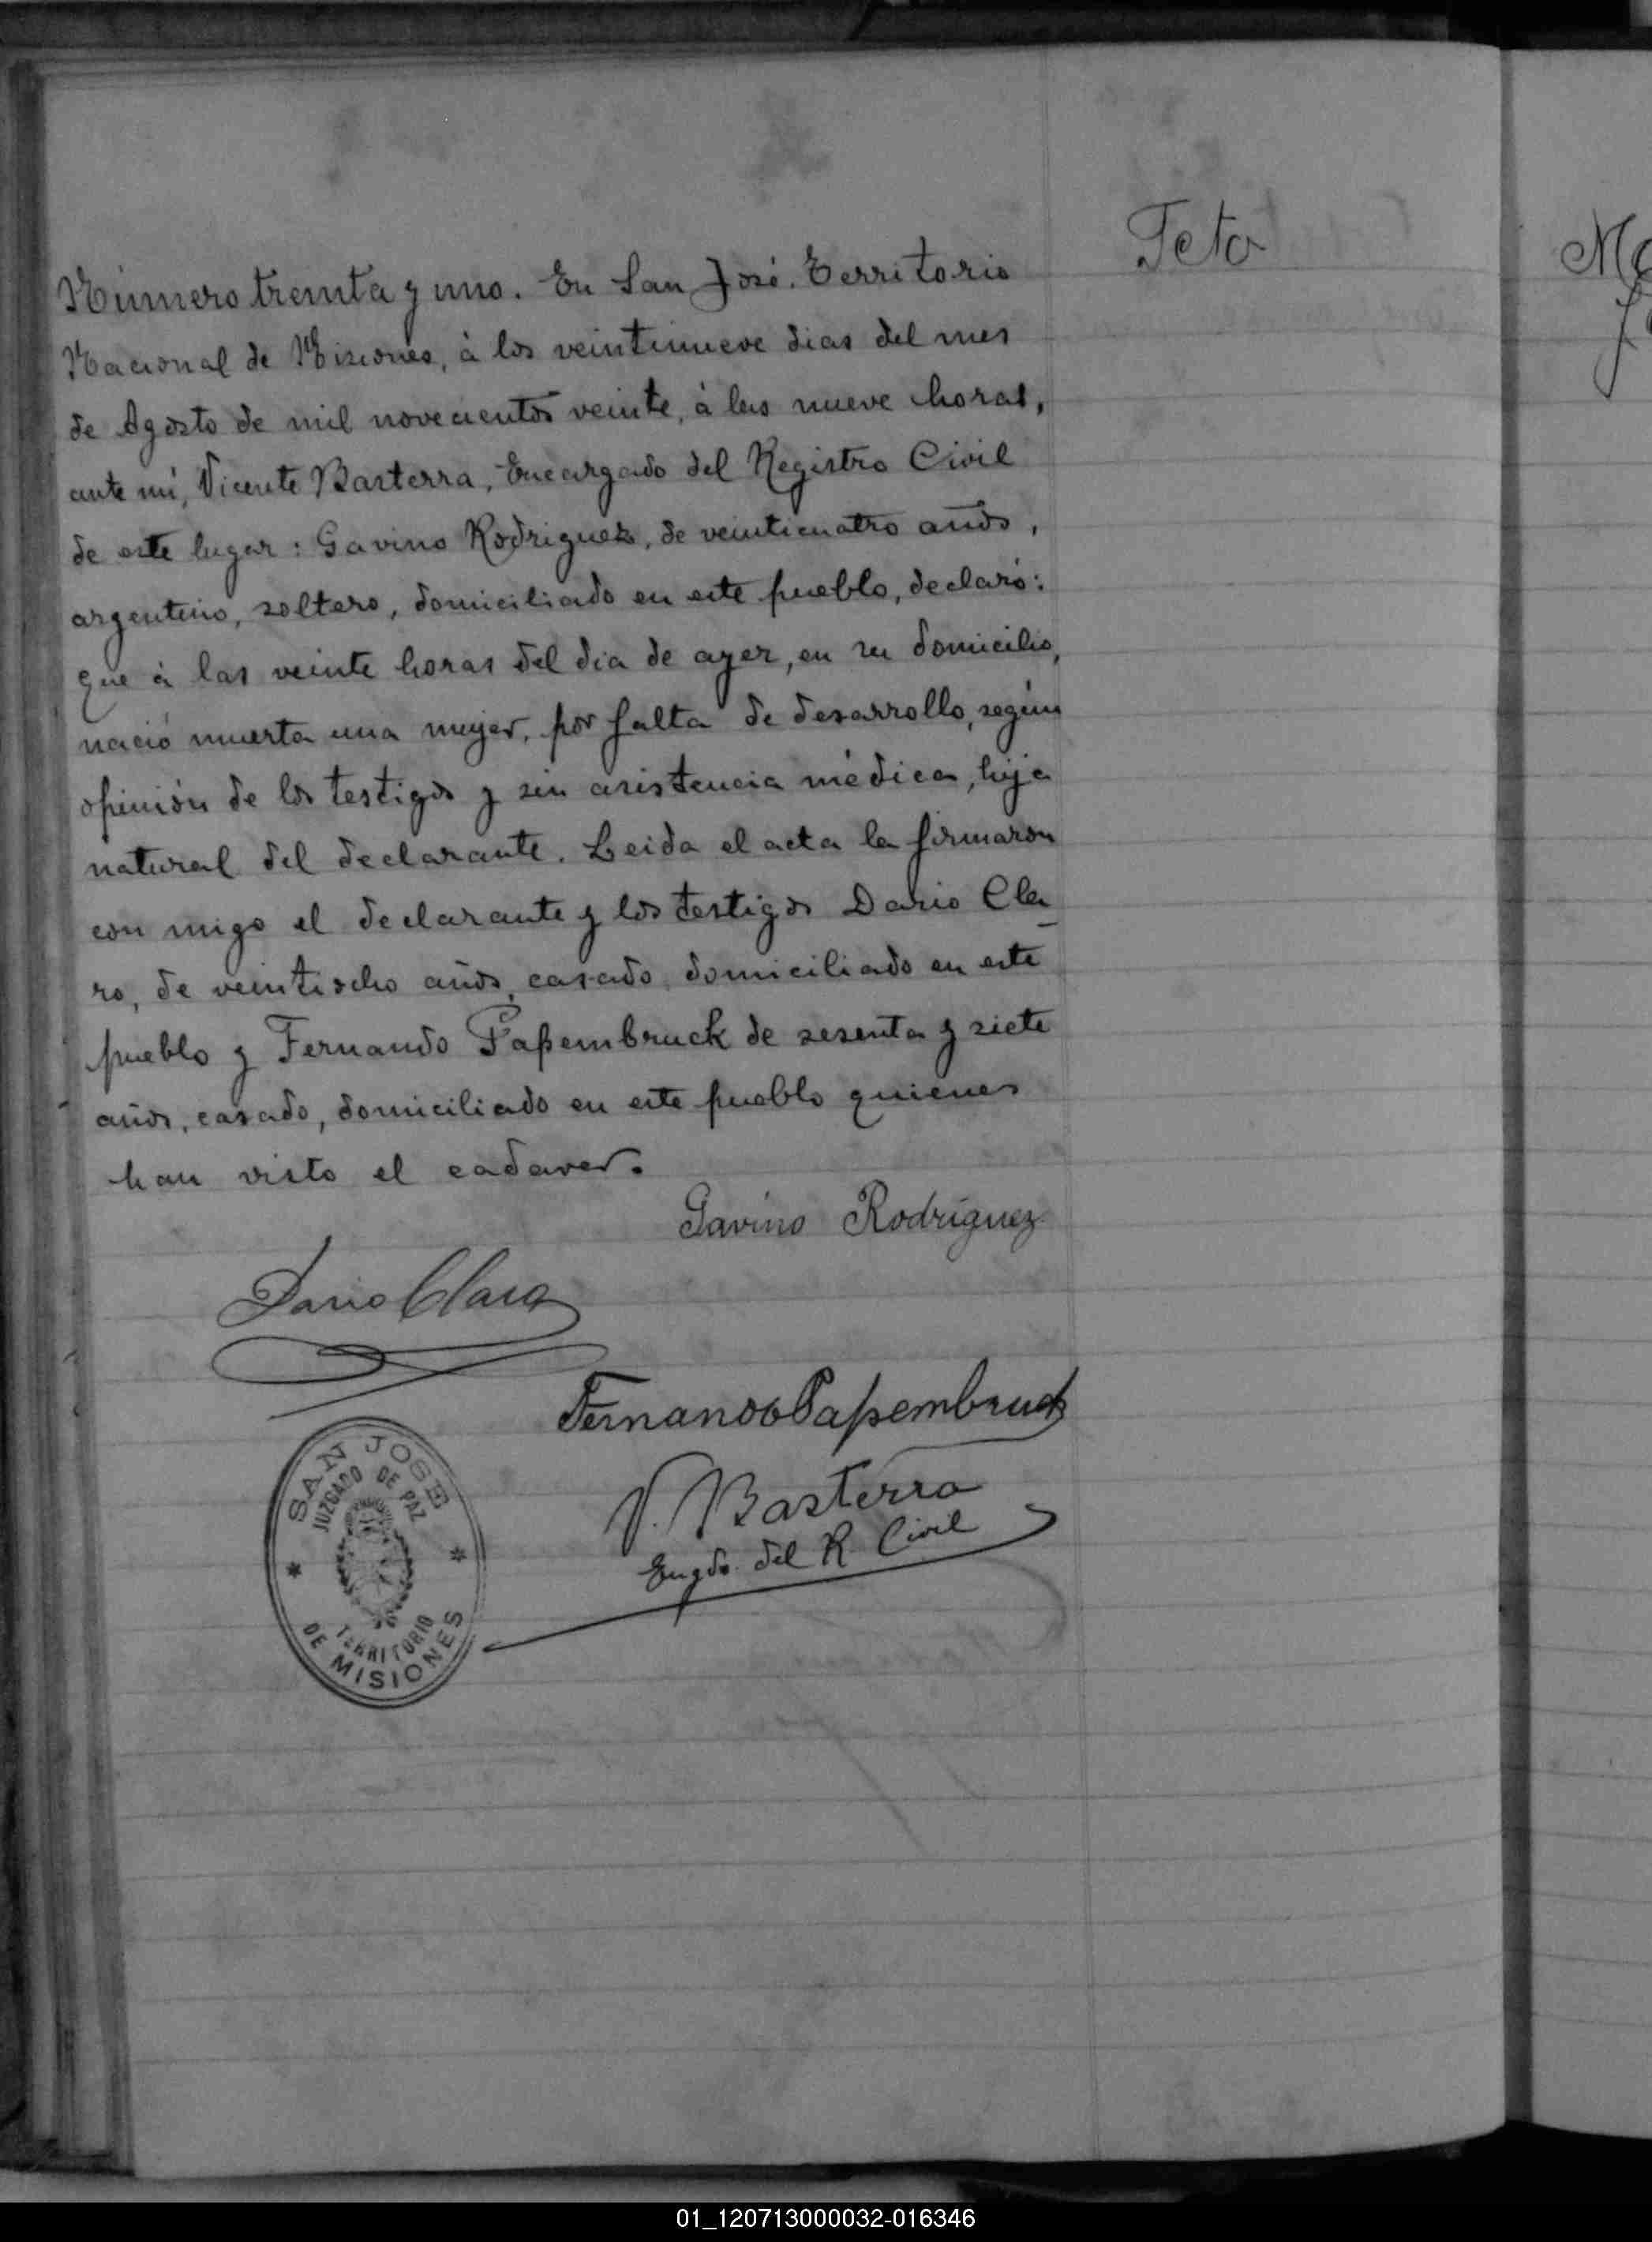 Feto
Número treinta y uno. En San José. Territorio
Nacional de Misiones, à los veintinueve dias del mes
de Agosto de mil novecientos veinte, à las nueve horas,
ante mi, Vicente Basterra, Encargado del Registro Civil
de este lugar: Gavino Rodriguez, de veinticuatro años,
argentino, soltero, domiciliado en este pueblo, declaró:
que à las veinte horas del dia de ayer, en su domicilio,
nació muerta una mujer, por falta de desarrollo, según
opinión de los testigos y sin asistencia médica, hija
natural del declarante. Leida el acta la firmaron
con migo el declarante y los testigos Dario Cla-
ro, de veintiocho años, casado, domiciliado en este
pueblo y Fernando Papembruck de sesenta y siete
años, casado, domiciliado en este pueblo quienes
han visto el cadaver.
Gavino Rodríguez
Dario Claro
Fernando Papembruck
V. Basterra
Engdo. del R. Civil
SAN JOSE
JUZGADO DE PAZ
TERRITORIO
DE MISIONES
01_120713000032-016346